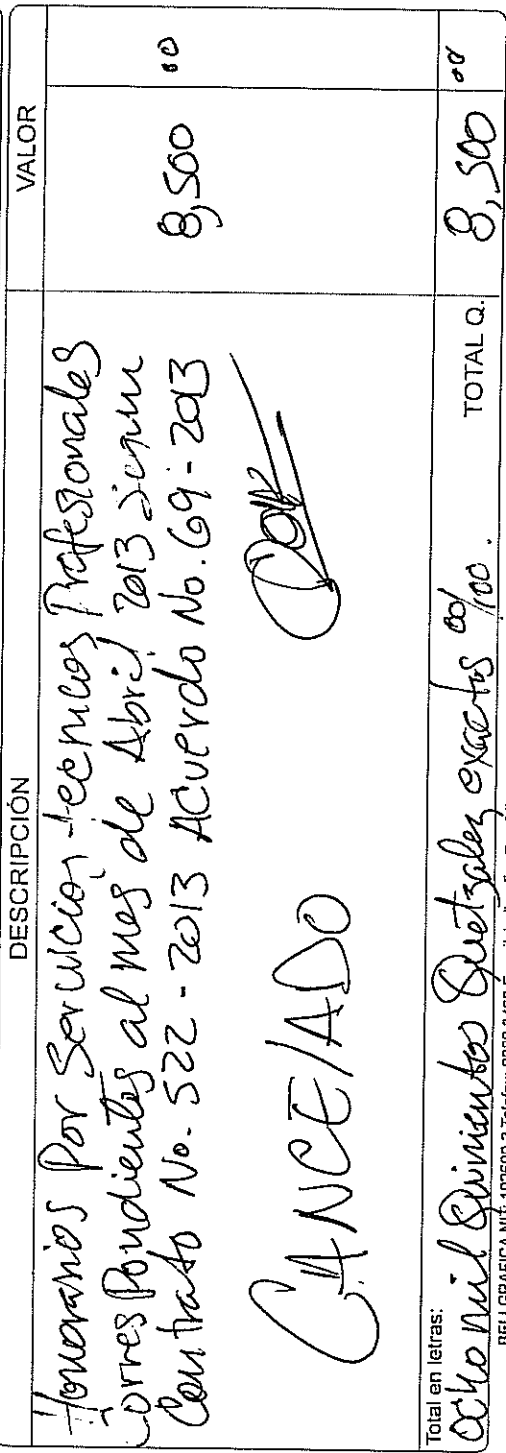 DESCRIPCIÓN
VALOR
Honorarios Por Servicios tecnicos Profesionales
Correspondientes al mes de Abril 2013 segun
Contrato No. 522-2013 Acuerdo No. 69-2013
8,500 00
CANCElADO
Total en letras:
Ocho mil Quinientos Quetzales exactos 00/100.
TOTAL Q.
8,500 00
BELLGRAFICA NIT: